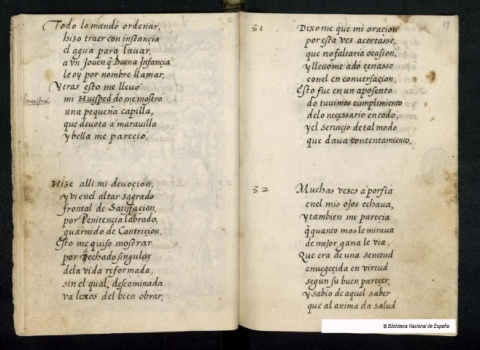 Todo lo mando ordenar,
hizo traer con instancia
el agua para lauar,
a vn Jouen q̃ buena Infançia
le oy por nombre llamar,
Y tras esto me lleuo
huesped
mi Huesped do me mostro
una pequeña capilla,
que deuota a marauilla
y bella me pareçio.
Hize alli mi deuocion,
y vi en el altar sagrado
frontal de Satisfacion,
por Penitencia labrado,
guarnido de Contriçion,
Esto me quiso mostrar
por dechado singular
dela vida reformada,
sin el qual, descaminada
va lexos del bien obrar,
51
19
Dixome que mi oracion
por esta ves acortasse,
que no faltaria ocasion,
y lleuome ado çenasse
con el en conuersaçion,
Esto fue en un aposento
do tuuimos cumplimiento
delo necessario en todo,
y el seruiçio de tal modo
que daua contentamiento.
52
Muchas veses a porfia
en el mis ojos echaua,
y tambien me parecia
q̃ quanto mas le miraua
de mejor gana le via,
Que era de una senetud
enuegeçida en virtud
segun su buen pareçer,
y sabio de aquel saber
que al anima da salud
© Biblioteca Nacional de España